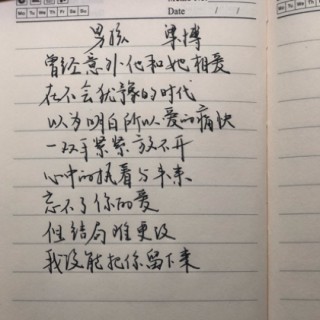 Date / /
Mo Tu We Th Fr Sa Su
Mo Tu We Th Fr Sa Su
男孩 梁博
曾经意外他和她相爱
在不会犹豫的时代
以为明白所以爱的痛快
一双手紧紧放不开
心中的执着与未来
忘不了你的爱
但结局难更改
我没能把你留下来